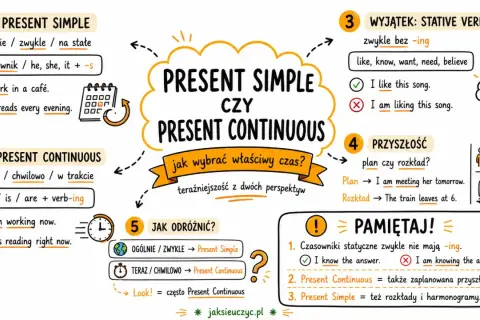 PRESENT SIMPLE
/ zwykle / na stałe
/ he, she, it + -s
in a café.
reads every evening.
PRESENT CONTINUOUS
/ chwilowo / w trakcie
/ is / are + verb-ing
working now.
is reading right now.
PRESENT SIMPLE
CZY
PRESENT CONTINUOUS
jak wybrać właściwy czas?
teraźniejszość z dwóch perspektyw
3 WYJĄTEK: STATIVE
zwykle bez -ing
like, know, want, need, believe
I like this song.
I am liking this song.
4 PRZYSZŁOŚĆ
plan czy rozkład?
Plan → I am meeting her tomorrow.
Rozkład → The train leaves at 6.
5 JAK ODRÓŻNIĆ?
OGÓLNIE / ZWYKLE → Present Simple
TERAZ / CHWILOWO → Present Continuous
→ Look! = często Present Continuous
?
! PAMIĘTAJ!
1. Czasowniki statyczne zwykle nie mają -ing.
I know the answer.
I am knowing the
2. Present Continuous = także zaplanowana
3. Present Simple = też rozkłady i harmonogramy.
jaksieuczyc.pl